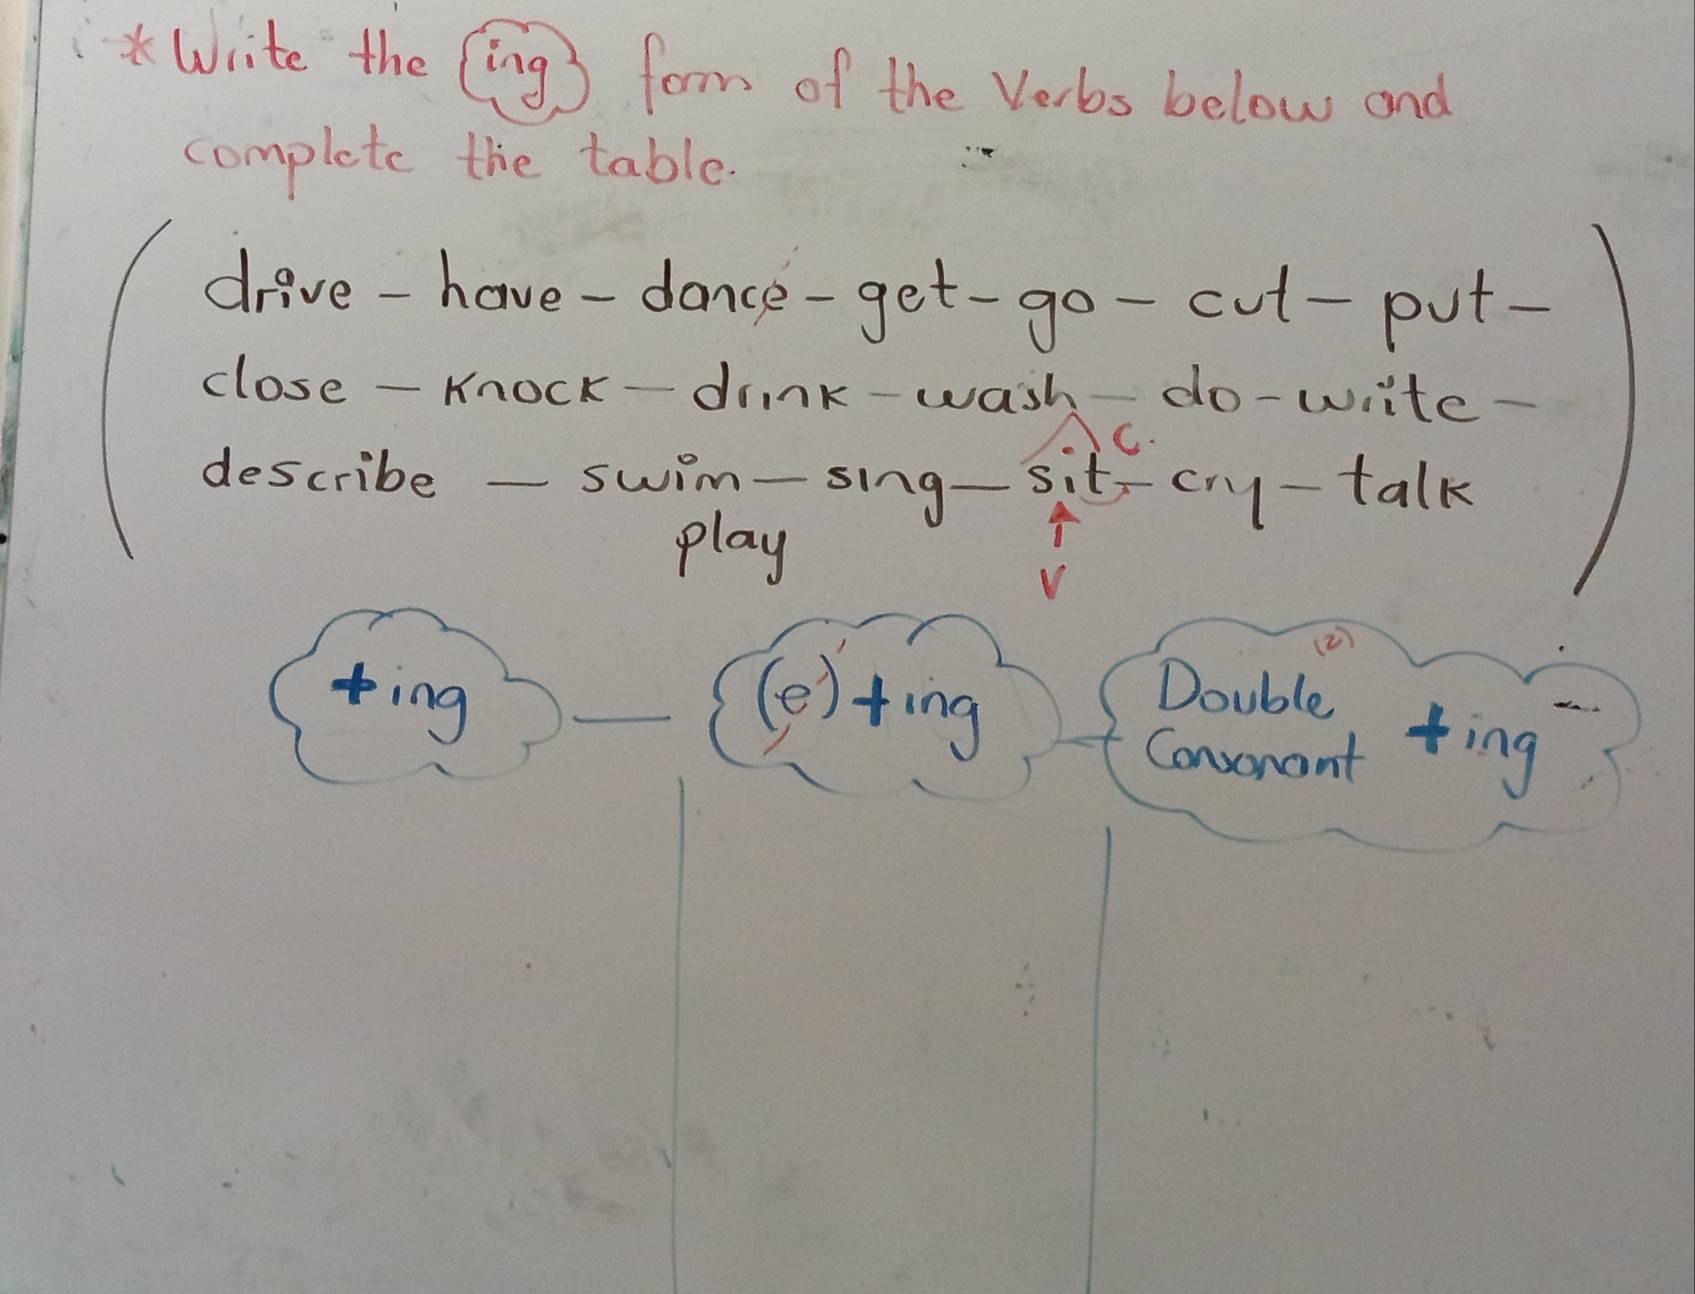 * Write the ing form of the Verbs below and
complete the table.
drive - have - dance - get - go - cut - put -
close - knock - drink - wash - do - write -
C.
describe - swim - sing - sit - cry - talk
play
V
+ing - (e) +ing - Double (2)
Consonant +ing